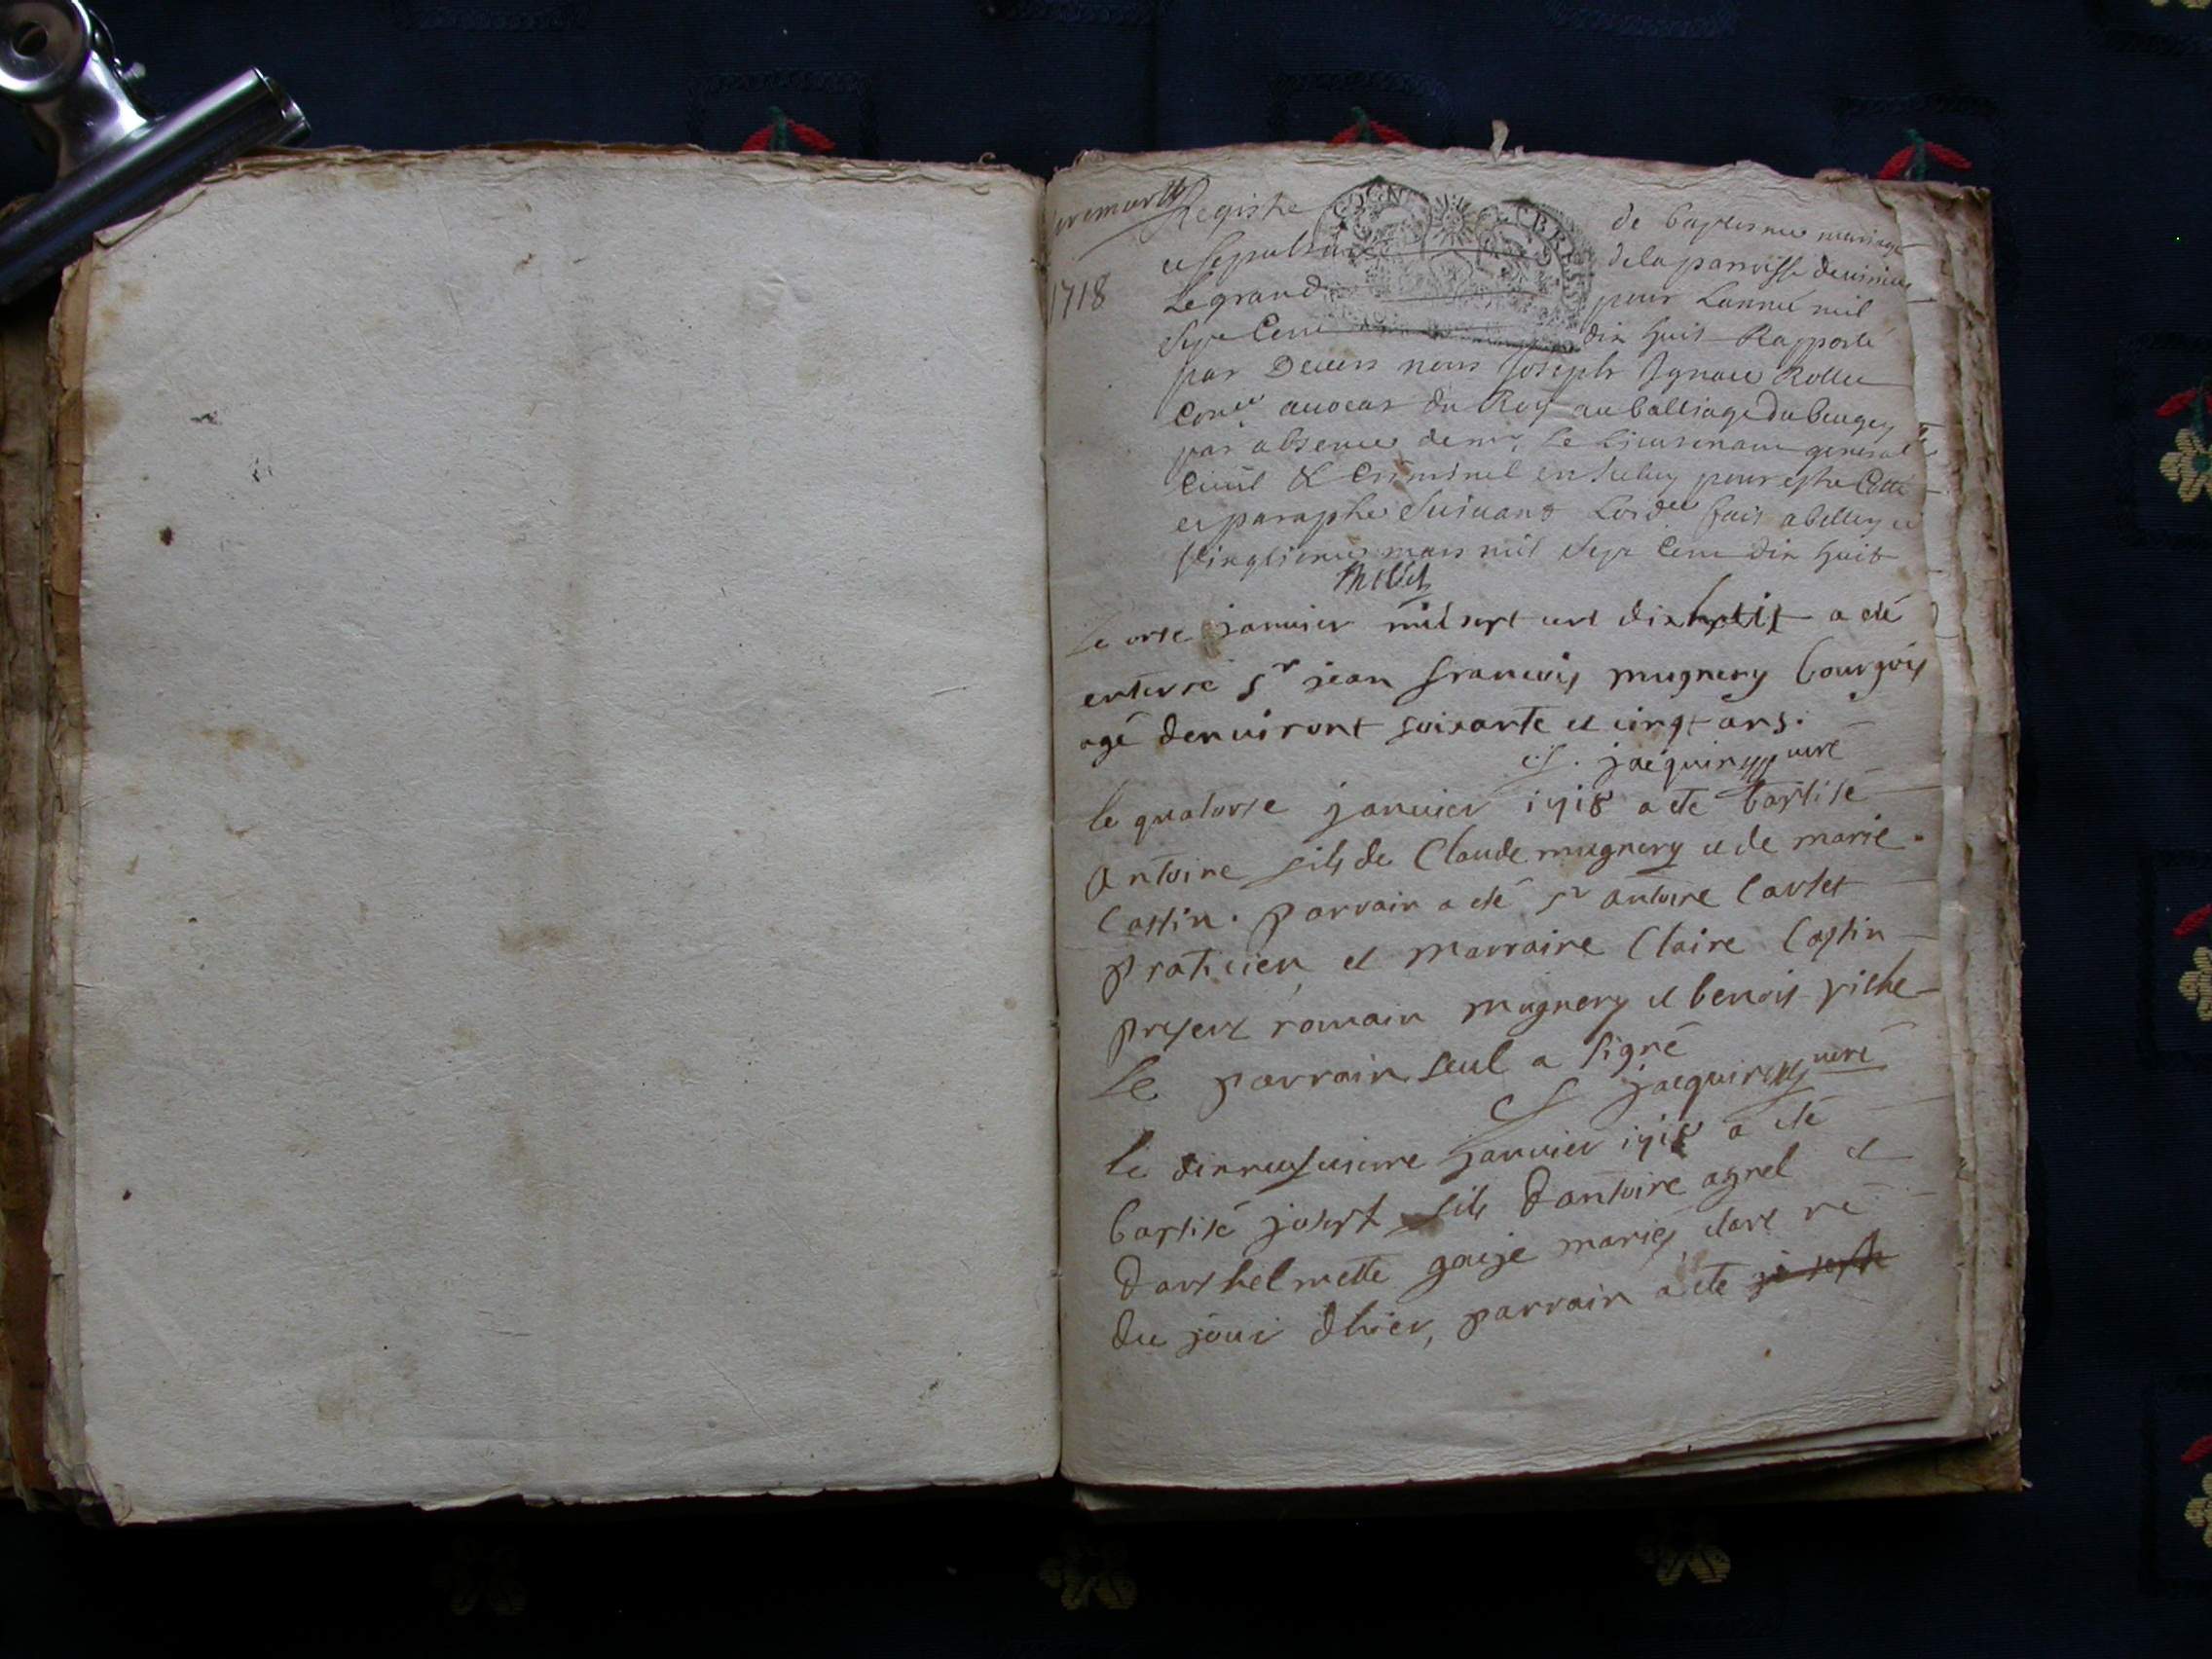 Registre de baptisme mariage
et sepulture de la parroisse de virieu
1718
Le grand pour Lannee mil
Sept Cent dix huit Rapporté
par Devers nous Joseph Ignace Rollet
Con.er avocat du Roy au balliage Du bugey
par absence de mr. Le Lieutenant general
Civil & Criminel en Iceluy pour estre Cotté
et paraphé Suivant Lord.ce fait a belley ce
Vingtieme mars mil Sept Cent dix huit
Le onze janvier mil sept cent dixhuit a eté
enterré Sr jean francois mugnery bourgois
agé denviront soixante et cinqt ans.
jacquin curé
le quatorse janvier 1718 a ete baptisé
Antoine fils de Claude mugnery et de marie
Castin. parrain a eté sr antoine Cartet
praticien et marraine Claire Castin
present romain mugnery et benoit piche
Le parrain seul a signé
jacquin curé
le dixneufvieme janvier 1718 a eté
baptisé josept fils Dantoine agnel et
Darthelmette gaije mariés, dont né
du jour dhier, parrain a ete joseph